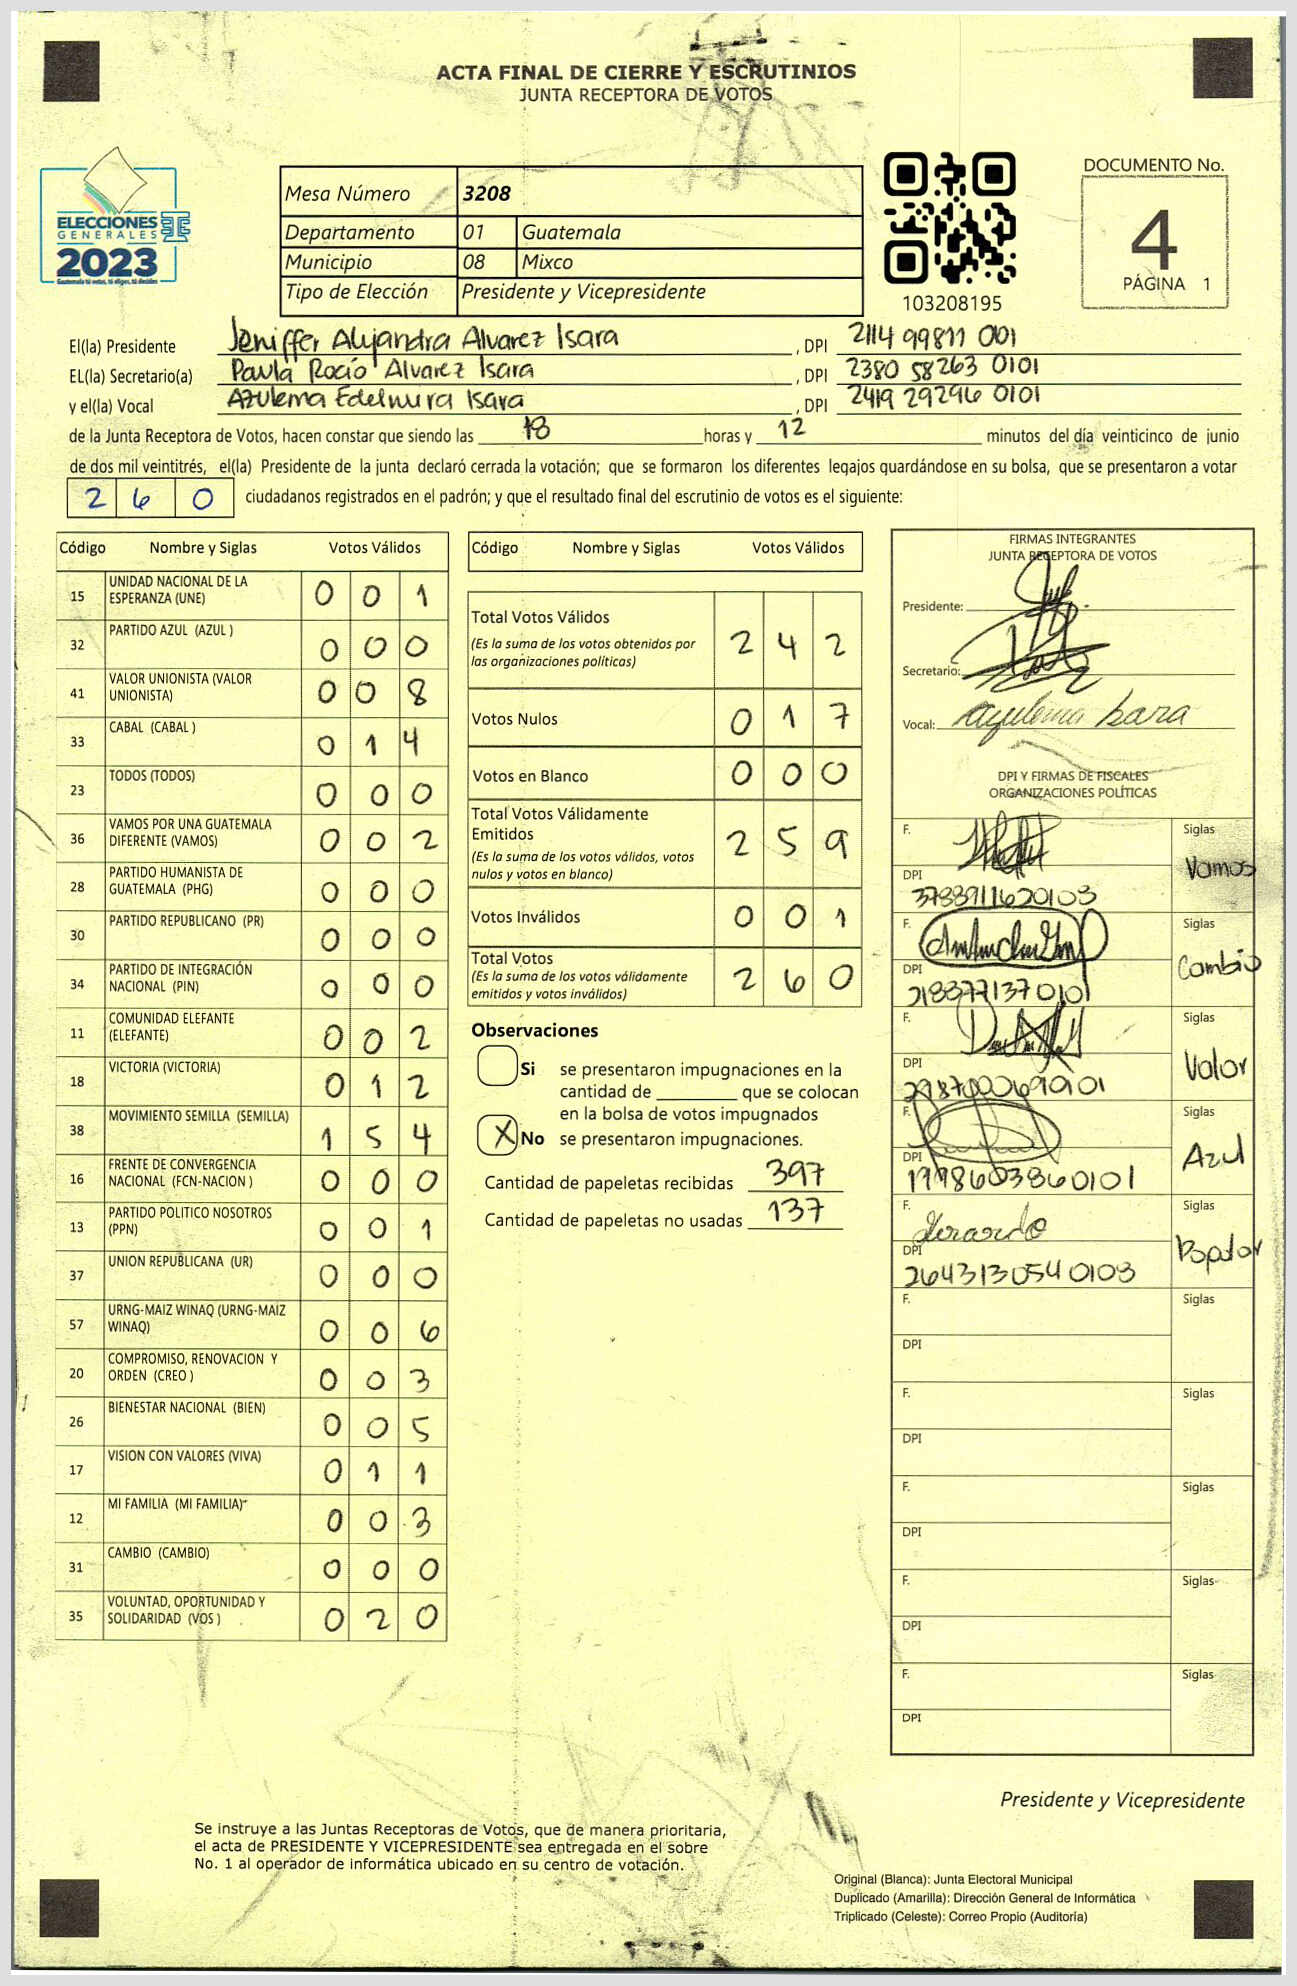 ACTA FINAL DE CIERRE Y ESCRUTINIOS
JUNTA RECEPTORA DE VOTOS
ELECCIONES
GENERALES
2023
Guatemala tú votas, tú eliges, tú decides
Mesa Número 3208
Departamento 01 Guatemala
Municipio 08 Mixco
Tipo de Elección Presidente y Vicepresidente
103208195
DOCUMENTO No.
4
PÁGINA 1
El(la) Presidente Jeniffer Alejandra Alvarez Isara , DPI 2114 99811 001
EL(la) Secretario(a) Paula Rocío Alvarez Isara , DPI 2380 58263 0101
y el(la) Vocal Azulema Edelmira Isara , DPI 2419 29296 0101
de la Junta Receptora de Votos, hacen constar que siendo las 18 horas y 12 minutos del día veinticinco de junio
de dos mil veintitrés, el(la) Presidente de la junta declaró cerrada la votación; que se formaron los diferentes legajos guardándose en su bolsa, que se presentaron a votar
260 ciudadanos registrados en el padrón; y que el resultado final del escrutinio de votos es el siguiente:
Código Nombre y Siglas Votos Válidos
15 UNIDAD NACIONAL DE LA ESPERANZA (UNE) 0 0 1
32 PARTIDO AZUL (AZUL ) 0 0 0
41 VALOR UNIONISTA (VALOR UNIONISTA) 0 0 8
33 CABAL (CABAL ) 0 1 4
23 TODOS (TODOS) 0 0 0
36 VAMOS POR UNA GUATEMALA DIFERENTE (VAMOS) 0 0 2
28 PARTIDO HUMANISTA DE GUATEMALA (PHG) 0 0 0
30 PARTIDO REPUBLICANO (PR) 0 0 0
34 PARTIDO DE INTEGRACIÓN NACIONAL (PIN) 0 0 0
11 COMUNIDAD ELEFANTE (ELEFANTE) 0 0 2
18 VICTORIA (VICTORIA) 0 1 2
38 MOVIMIENTO SEMILLA (SEMILLA) 1 5 4
16 FRENTE DE CONVERGENCIA NACIONAL (FCN-NACION ) 0 0 0
13 PARTIDO POLITICO NOSOTROS (PPN) 0 0 1
37 UNION REPUBLICANA (UR) 0 0 0
57 URNG-MAIZ WINAQ (URNG-MAIZ WINAQ) 0 0 6
20 COMPROMISO, RENOVACION Y ORDEN (CREO ) 0 0 3
26 BIENESTAR NACIONAL (BIEN) 0 0 5
17 VISION CON VALORES (VIVA) 0 1 1
12 MI FAMILIA (MI FAMILIA) 0 0 3
31 CAMBIO (CAMBIO) 0 0 0
35 VOLUNTAD, OPORTUNIDAD Y SOLIDARIDAD (VOS ) 0 2 0
Código Nombre y Siglas Votos Válidos
Total Votos Válidos 2 4 2
(Es la suma de los votos obtenidos por
las organizaciones políticas)
Votos Nulos 0 1 7
Votos en Blanco 0 0 0
Total Votos Válidamente
Emitidos 2 5 9
(Es la suma de los votos válidos, votos
nulos y votos en blanco)
Votos Inválidos 0 0 1
Total Votos 2 6 0
(Es la suma de los votos válidamente
emitidos y votos inválidos)
Observaciones
Si se presentaron impugnaciones en la
cantidad de ________ que se colocan
en la bolsa de votos impugnados
X No se presentaron impugnaciones.
Cantidad de papeletas recibidas 397
Cantidad de papeletas no usadas 137
FIRMAS INTEGRANTES
JUNTA RECEPTORA DE VOTOS
Presidente:
Secretario:
Vocal: Azulema Isara
DPI Y FIRMAS DE FISCALES
ORGANIZACIONES POLÍTICAS
F. Siglas
Vamos
DPI
F. Siglas
Cambio
DPI 218877137 0101
F. Siglas
Valor
DPI
F. Siglas
Azul
DPI 1998603860101
F. Gerardo Siglas
Popular
DPI 2643130540103
F. Siglas
DPI
F. Siglas
DPI
F. Siglas
DPI
F. Siglas
DPI
F. Siglas
DPI
Presidente y Vicepresidente
Se instruye a las Juntas Receptoras de Votos, que de manera prioritaria,
el acta de PRESIDENTE Y VICEPRESIDENTE sea entregada en el sobre
No. 1 al operador de informática ubicado en su centro de votación.
Original (Blanca): Junta Electoral Municipal
Duplicado (Amarilla): Dirección General de Informática
Triplicado (Celeste): Correo Propio (Auditoría)